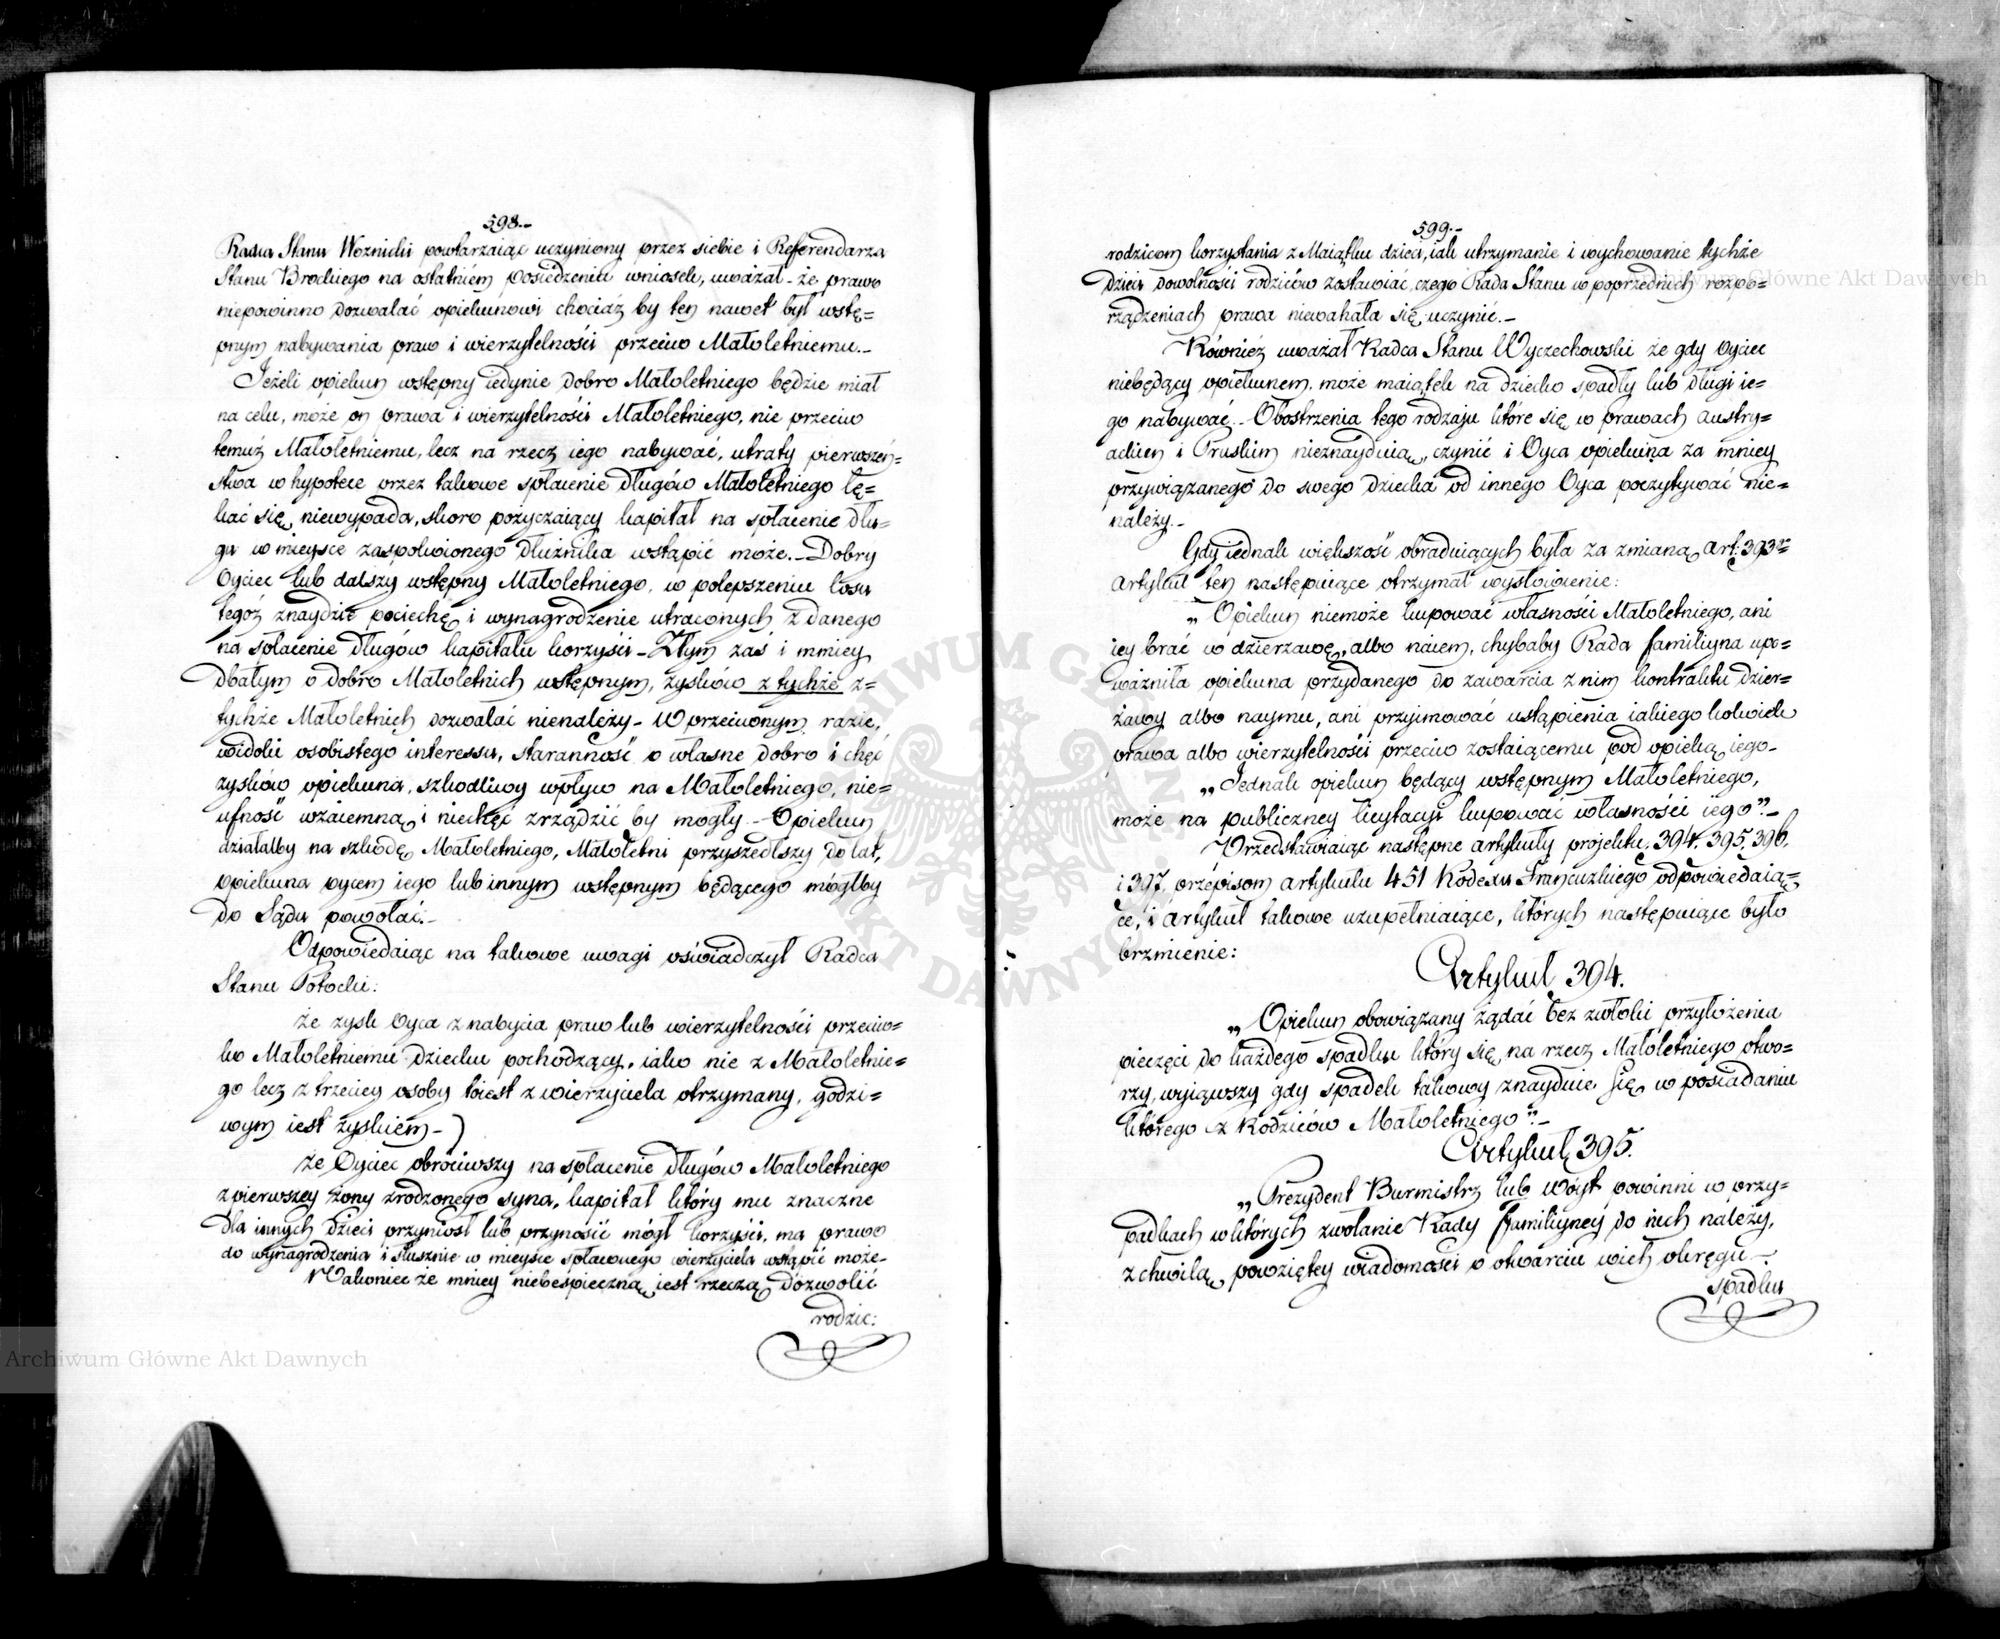 598.-
Radca Stanu Woznicki powtarzaiąc uczyniony przez siebie i Referendarza
Stanu Brockiego na ostatniém posiedzeniu wniosek, uważał – że prawo
niepowinno dozwalać opiekunowi chociáż by ten nawet był wstę=
pnym nabywania praw i wierzytelności przeciw Małoletniemu.–
Jeżeli opiekun wstępny iedynie dobro Małoletniego będzie miał
na celu, może on prawa i wierzytelności Małoletniego, nie przeciw
temuż Małoletniemu, lecz na rzecz iego nabywać, utraty pierwszeń=
stwa w hypotece przez takowe spłacenie długów Małoletniego lę=
kać się niewypada, skoro pożyczaiący kapitał na spłacenie dłu=
gu w mieysce zaspokoionego dłużnika wstąpić może.– Dobry
Oyciec lub dalszy wstępny Małoletniego, w polepszeniu losu
tegóż znaydzie pociechę i wynagrodzenie utraconych z danego
na spłacenie długów kapitału korzyści – Złym zaś i mniey
dbałym o dobro Małoletnich wstępnym, zysków z tychże z=
tychże Małoletnich dozwalać nienależy – W przeciwnym razie,
widoki osobistego interessu, staranność o własne dobro i chęć
zysków opiekuna, szkodliwy wpływ na Małoletniego, nie=
ufność wzaiemną i niechęć zrządzić by mogły – Opiekun
działałby na szkodę Małoletniego, Małoletni przyszedłszy do lat,
opiekuna oycem iego lub innym wstępnym będącego mógłby
do Sądu powołać.–
Odpowiedaiąc na takowe uwagi oświadczył Radca
Stanu Potocki:
że zysk Oyca z nabycia praw lub wierzytelności przeciw=
ko Małoletniemu dziecku pochodzący, iako nie z Małoletnie=
go lecz z trzeciey osoby toiest z wierzyciela otrzymany, godzi=
wym iest zyskiem –
że Oyciec obróciwszy na spłacenie długów Małoletniego
z pierwszey żony zrodzonego syna, kapitał który mu znaczne
dla innych dzieci przyniosł lub przynosić mógł korzyści, ma prawo
do wynagrodzenia i słusznie w mieysce spłaconego wierzyciela wstąpić może –
Nakoniec że mniey niebespieczną iest rzeczą dozwolić
rodzic:
599.–
rodzicom korzystania z Maiątku dzieci, iak utrzymanie i wychowanie tychże
dzieci dowolności rodziców zostawiać, czego Rada Stanu w poprzednich rozpo=
rządzeniach prawa niewahała się uczynić.–
Również uważał Radca Stanu Wyczechowski że gdy Oyciec
niebędący opiekunem, może maiątek na dziecko spadły lub długi ie=
go nabywać.– Obostrzenia tego rodzaju które się w prawach austry=
ackiem i Pruskim nieznayduią, czynić i Oyca opiekuna za mniey
przywiązanego do swego dziecka od innego Oyca poczytywać nie=
należy.–
Gdy iednak większość obraduiących była za zmianą Art: 393
Artykuł ten następuiące otrzymał wysłowienie:
„ Opiekun niemoże kupować własności Małoletniego, ani
iey brać w dzierzawę, albo naiem, chybaby Rada familiyna upo=
ważniła opiekuna przydanego do zawarcia z nim kontraktu dzier=
żawy albo naymu, ani przyimować ustąpienia iakiego kolwiek
prawa albo wierzytelności przeciw zostaiącemu pod opieką iego –
„ Jednak opiekun będący wstępnym Małoletniego,
może na publiczney licytacyi kupować własności iego”.–
Przedstawiaiąc następne artykuły projektu, 394. 395. 396.
i 397. przepisom artykułu 451 Kodexu Francuzkiego odpowiedaią=
ce, i artykuł takowe uzupełniaiące, których następuiące było
brzmienie:
Artykuł 394.
„ Opiekun obowiązany żądać bez zwłoki przyłożenia
pieczęci do każdego spadku który się na rzecz Małoletniego otwo=
rzy, wyiąwszy gdy spadek takowy znayduie się w posiadaniu
którego z Rodziców Małoletniego”.–
Artykuł 395.
„ Prezydent Burmistrz lub Wóyt powinni w przy=
padkach w których zwołanie Rady familiyney do nich należy,
z chwilą powziętey wiadomości o otwarciu w ich okręgu –
spadku
Archiwum Główne Akt Dawnych
Archiwum Główne Akt Dawnych
ARCHIWUM GŁÓWNE AKT DAWNYCH